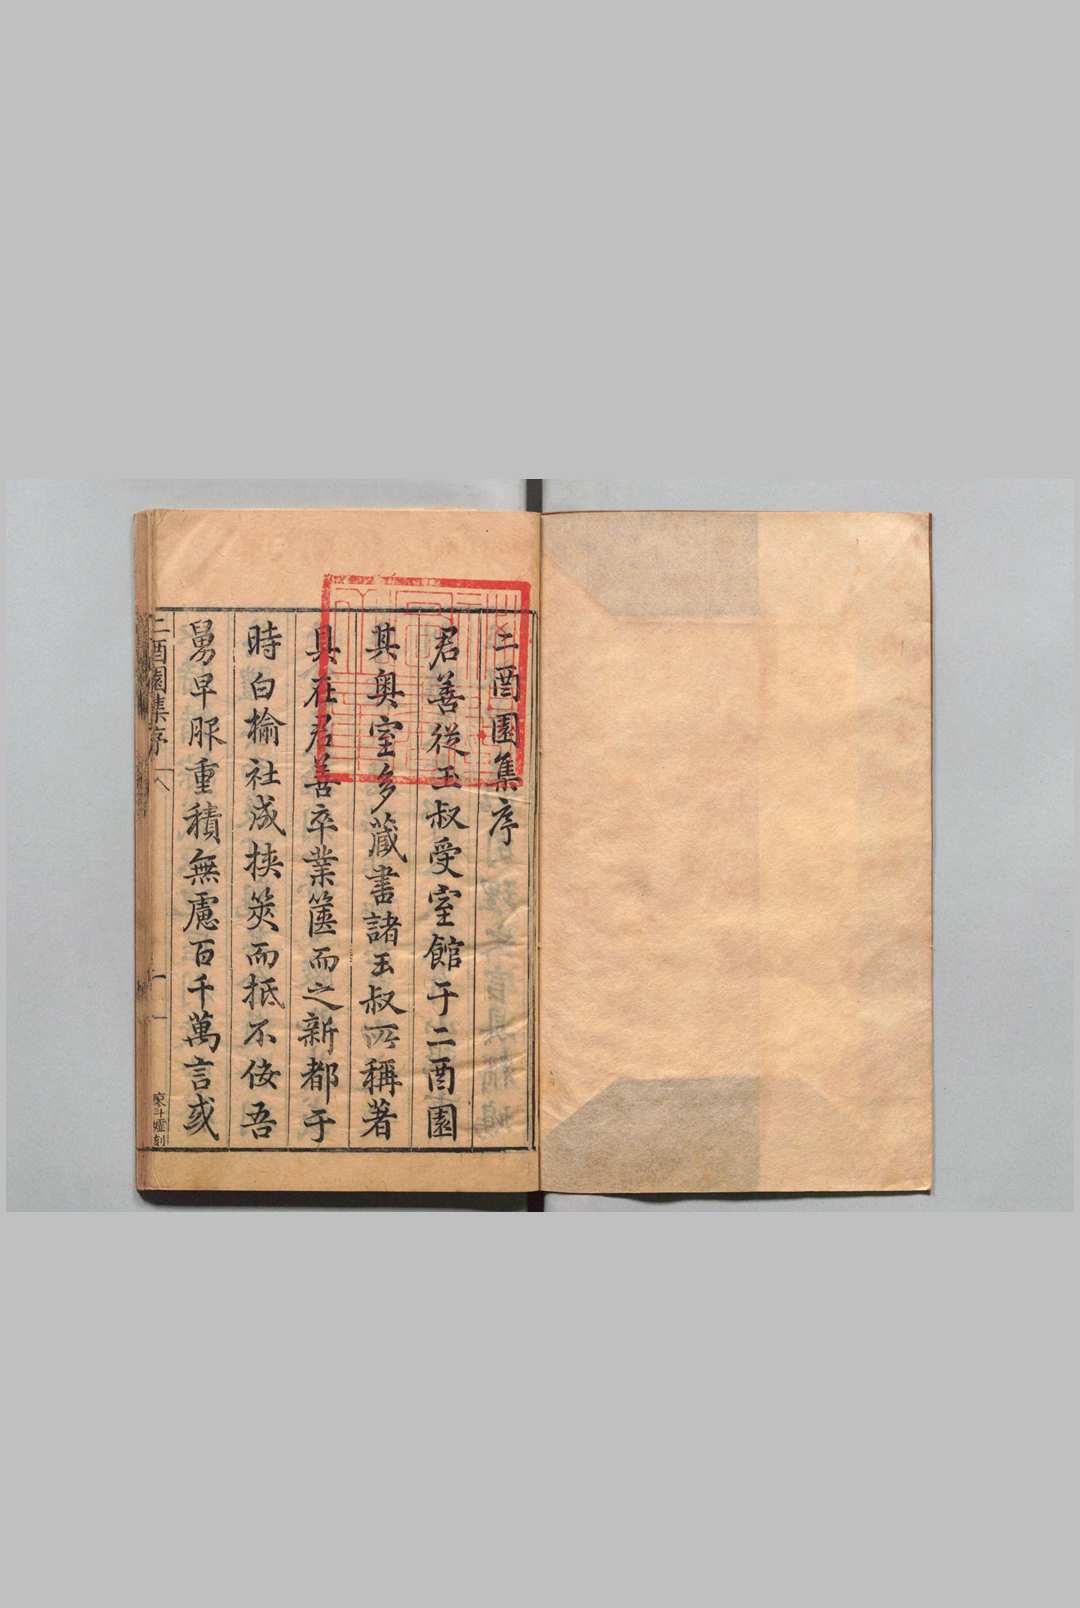 二酉園集序
君善從玉叔受室館于二酉園
其奥室多藏書諸玉叔所稱著
具在君善卒業篋而之新都于
時白榆社成挾筴而抵不佞吾
舅早服重積無慮百千萬言或
二酉園集序
一